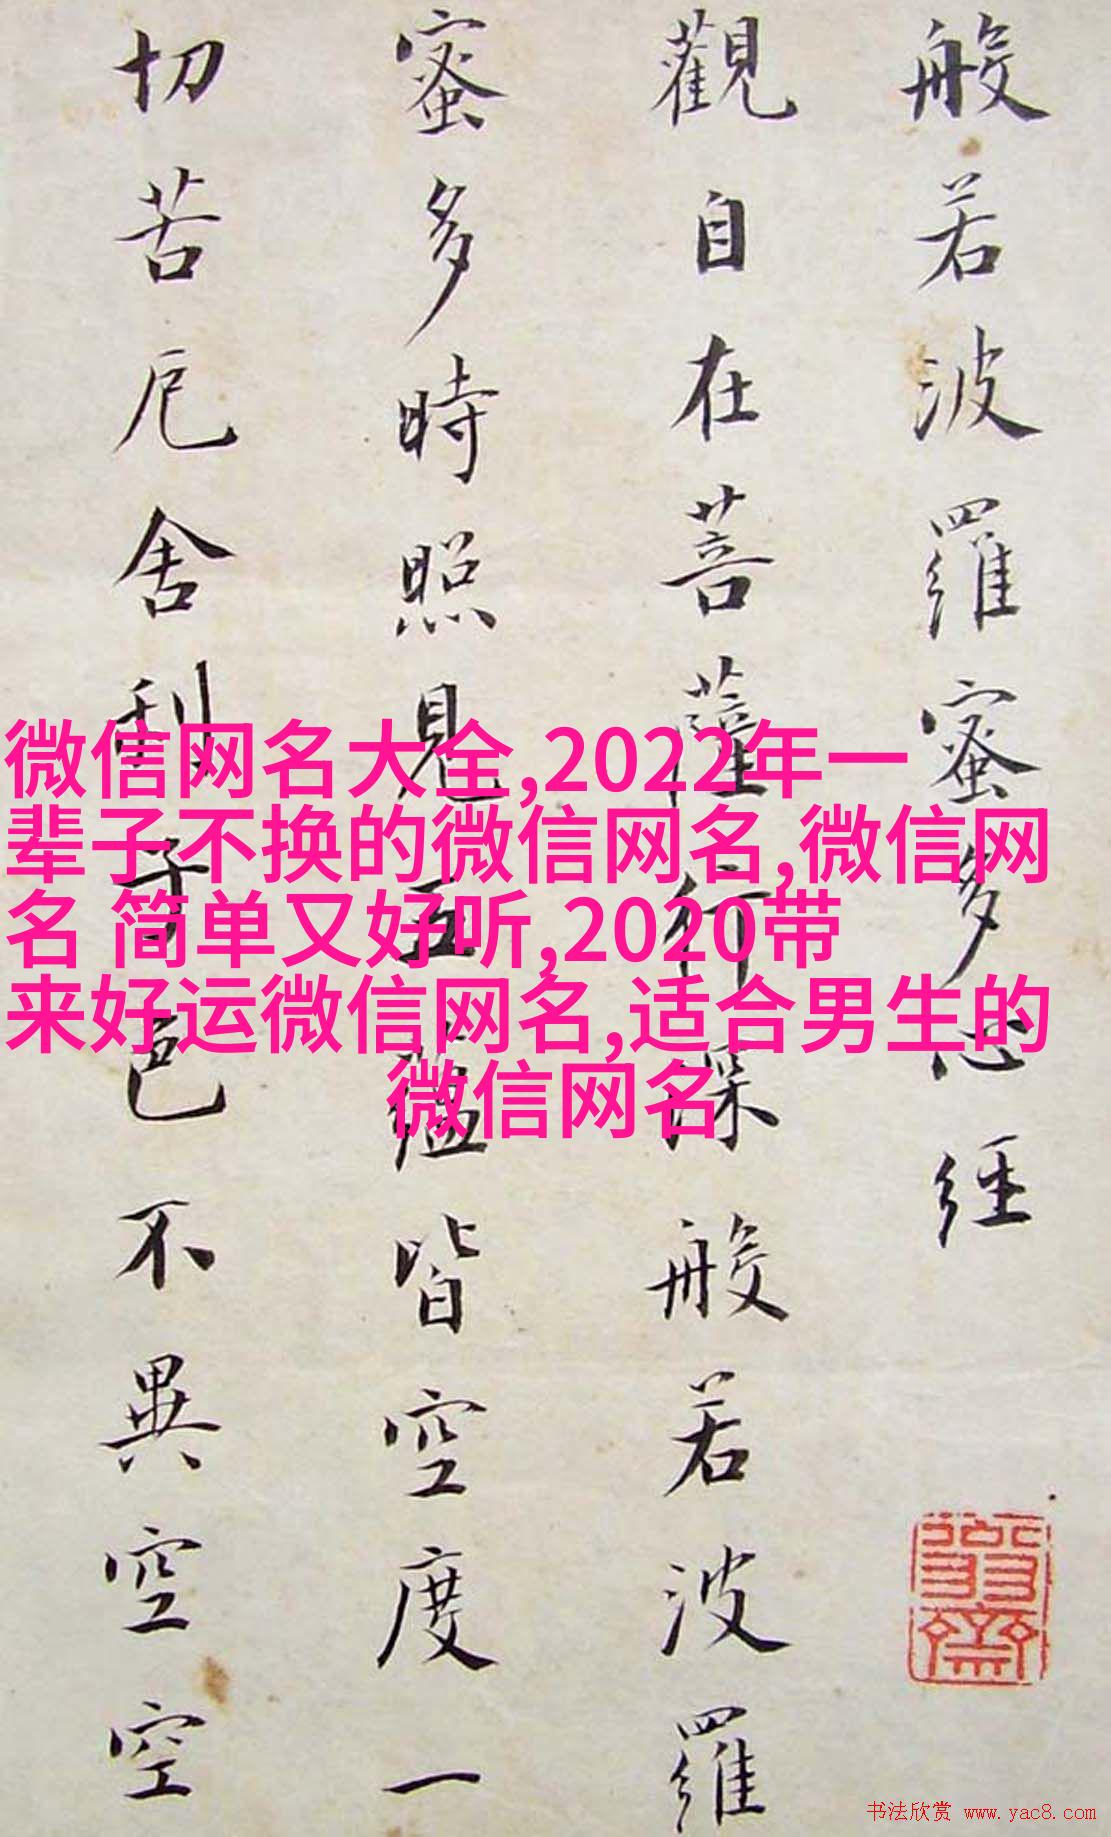 般若波羅蜜多心経
觀自在菩薩行深般若波羅
蜜多時照見五蘊皆空度一
切苦厄舍利子色不異空空
微信网名大全,2022年一
辈子不换的微信网名,微信网
名 简单又好听,2020带
来好运微信网名,适合男生的
微信网名
书法欣赏 www.yac8.com